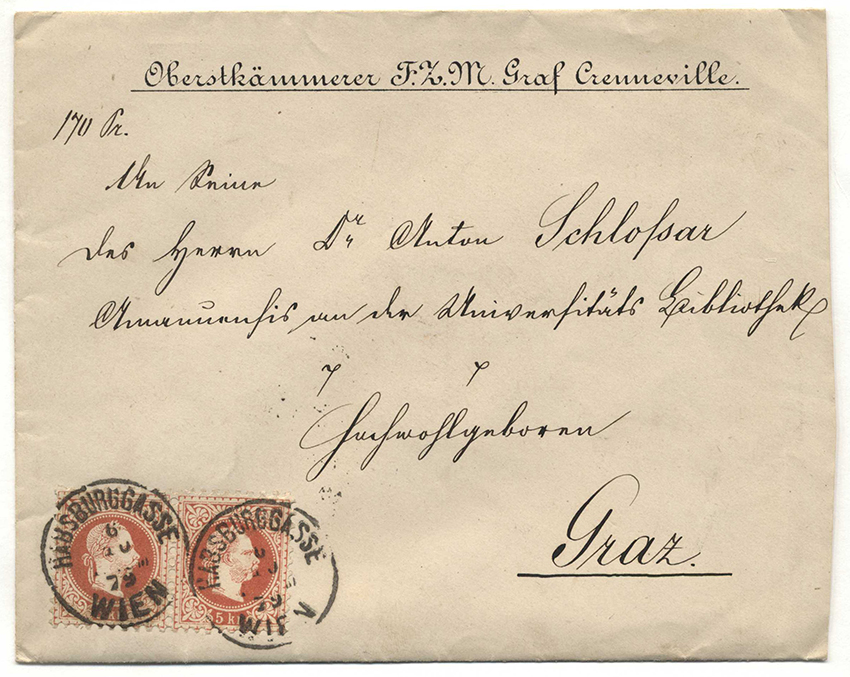 Oberstkämmerer F.Z.M. Graf Crenneville.
170 Pr.
An Seine
des Herrn Dr Anton Schloßar
Amanuensis an der Universitäts Bibliothek
Hochwohlgeboren
Graz.
HABSBURGGASSE
6
79
WIEN
HABSBURGGASSE
6
79
WIEN
5 kr